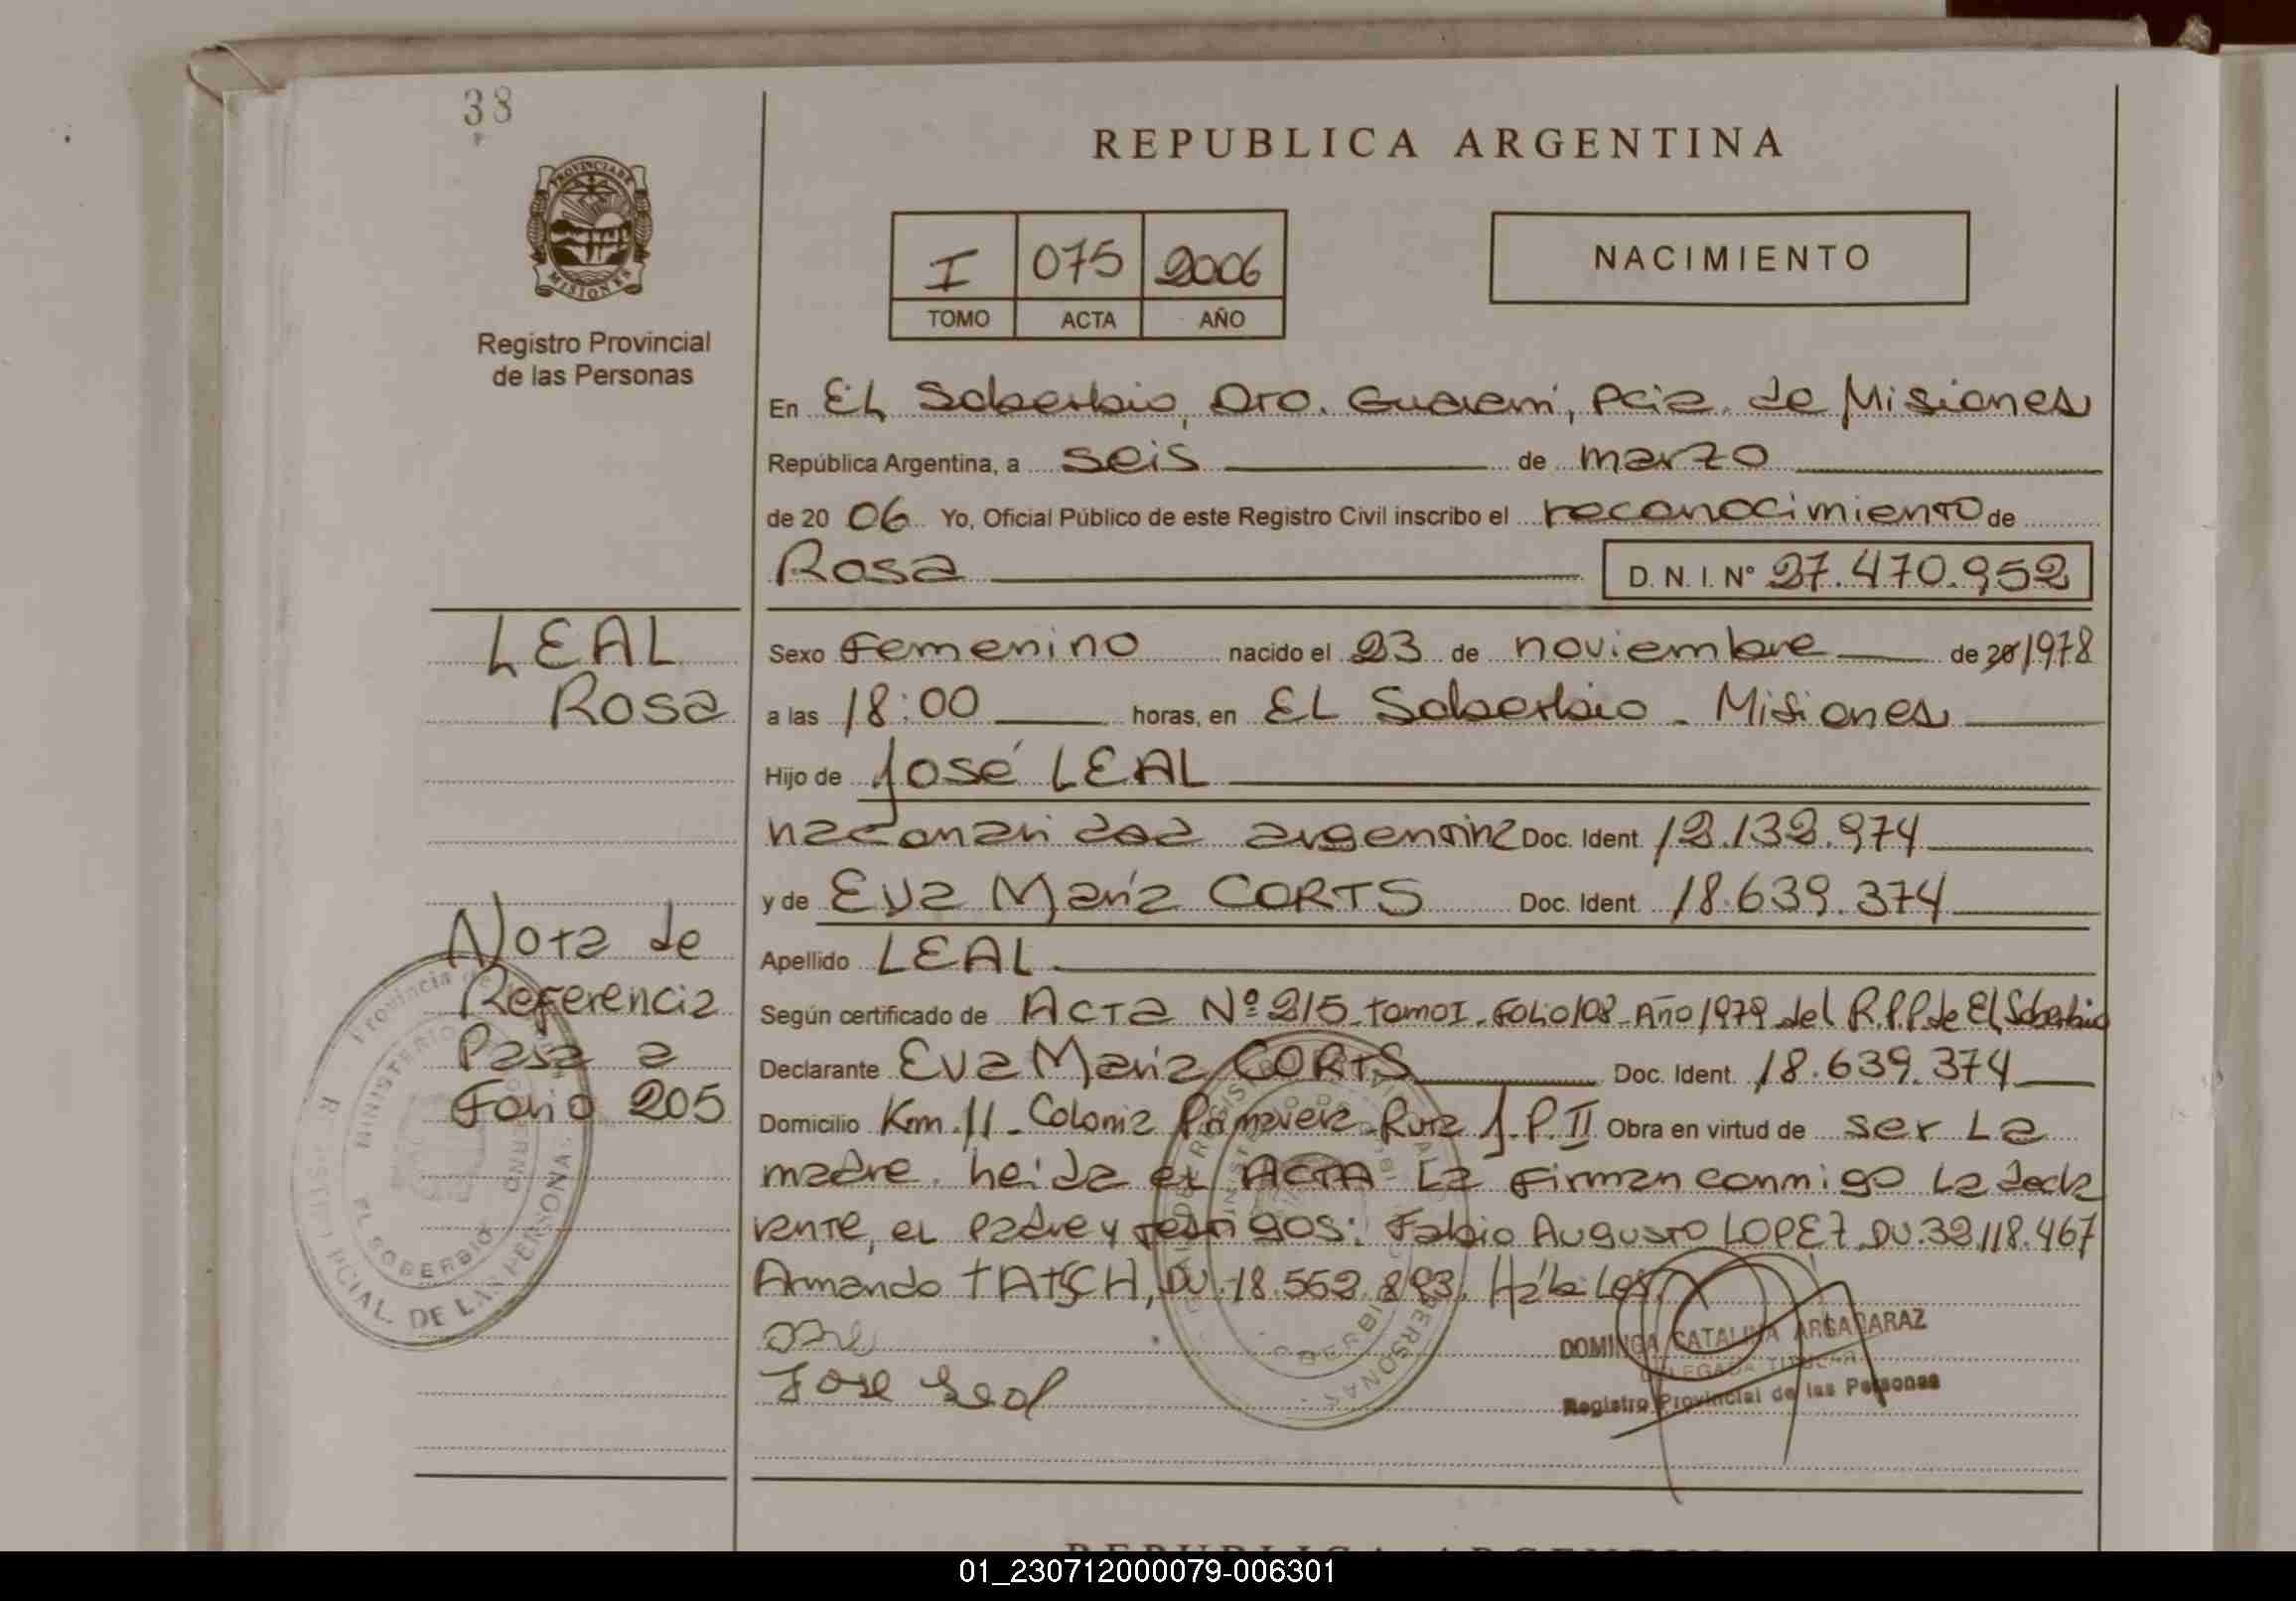 38
REPUBLICA ARGENTINA
PROVINCIA DE
MISIONES
Registro Provincial
de las Personas
I 075 2006
TOMO ACTA AÑO
NACIMIENTO
En EL Soberbio, Dto. Guarani, Pcia. de Misiones
República Argentina, a seis de marzo
de 20 06 Yo, Oficial Público de este Registro Civil inscribo el reconocimiento de
Rosa D. N. I. Nº 27.470.952
LEAL
Rosa
Sexo Femenino nacido el 23 de noviembre de 20 1978
a las 18:00 horas, en EL Soberbio - Misiones
Hijo de José LEAL
nacionalidad argentina Doc. Ident. 12.132.974
y de Eva María CORTS Doc. Ident. 18.639.374
Apellido LEAL
Nota de
Referencia
Pasa a
Folio 205
Según certificado de ACTA Nº 215 - tomo I - Folio 108 - Año 1979 del R.P.P. de El Soberbio
Declarante Eva María CORTS Doc. Ident. 18.639.374
Domicilio Km. 11 - Colonia Primavera - Ruta J.P. II Obra en virtud de ser La
madre. Leida el ACTA La Firman conmigo La decla
rante, el Padre y testigos: Fabio Augusto LOPEZ DU. 32.118.467
Armando TATSCH, DU. 18.552.893. Hábiles
Jose Leal
DOMINGA CATALINA ARGAÑARAZ
DELEGADA TITULAR
Registro Provincial de las Personas
MINISTERIO DE GOBIERNO
EL SOBERBIO
PCIAL. DE LAS PERSONAS
REPUBLICA ARGENTINA
01_230712000079-006301